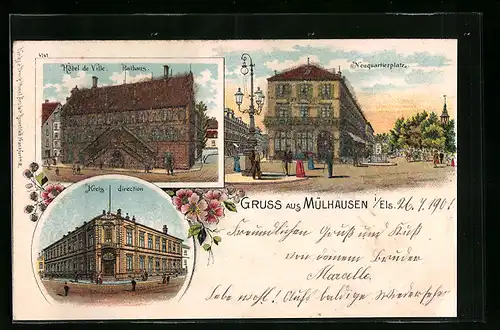 4741
Hôbel de Ville. Rathaus.
Neuquartierplatz.
Kreisdirection
GRUSS AUS MÜLHAUSEN i/Els. 26. 7. 1901
Freundlichen Gruß und Kuß
von deinem Bruder
Marcelle.
Lebe wohl! Aufs baldige Wiedersehen